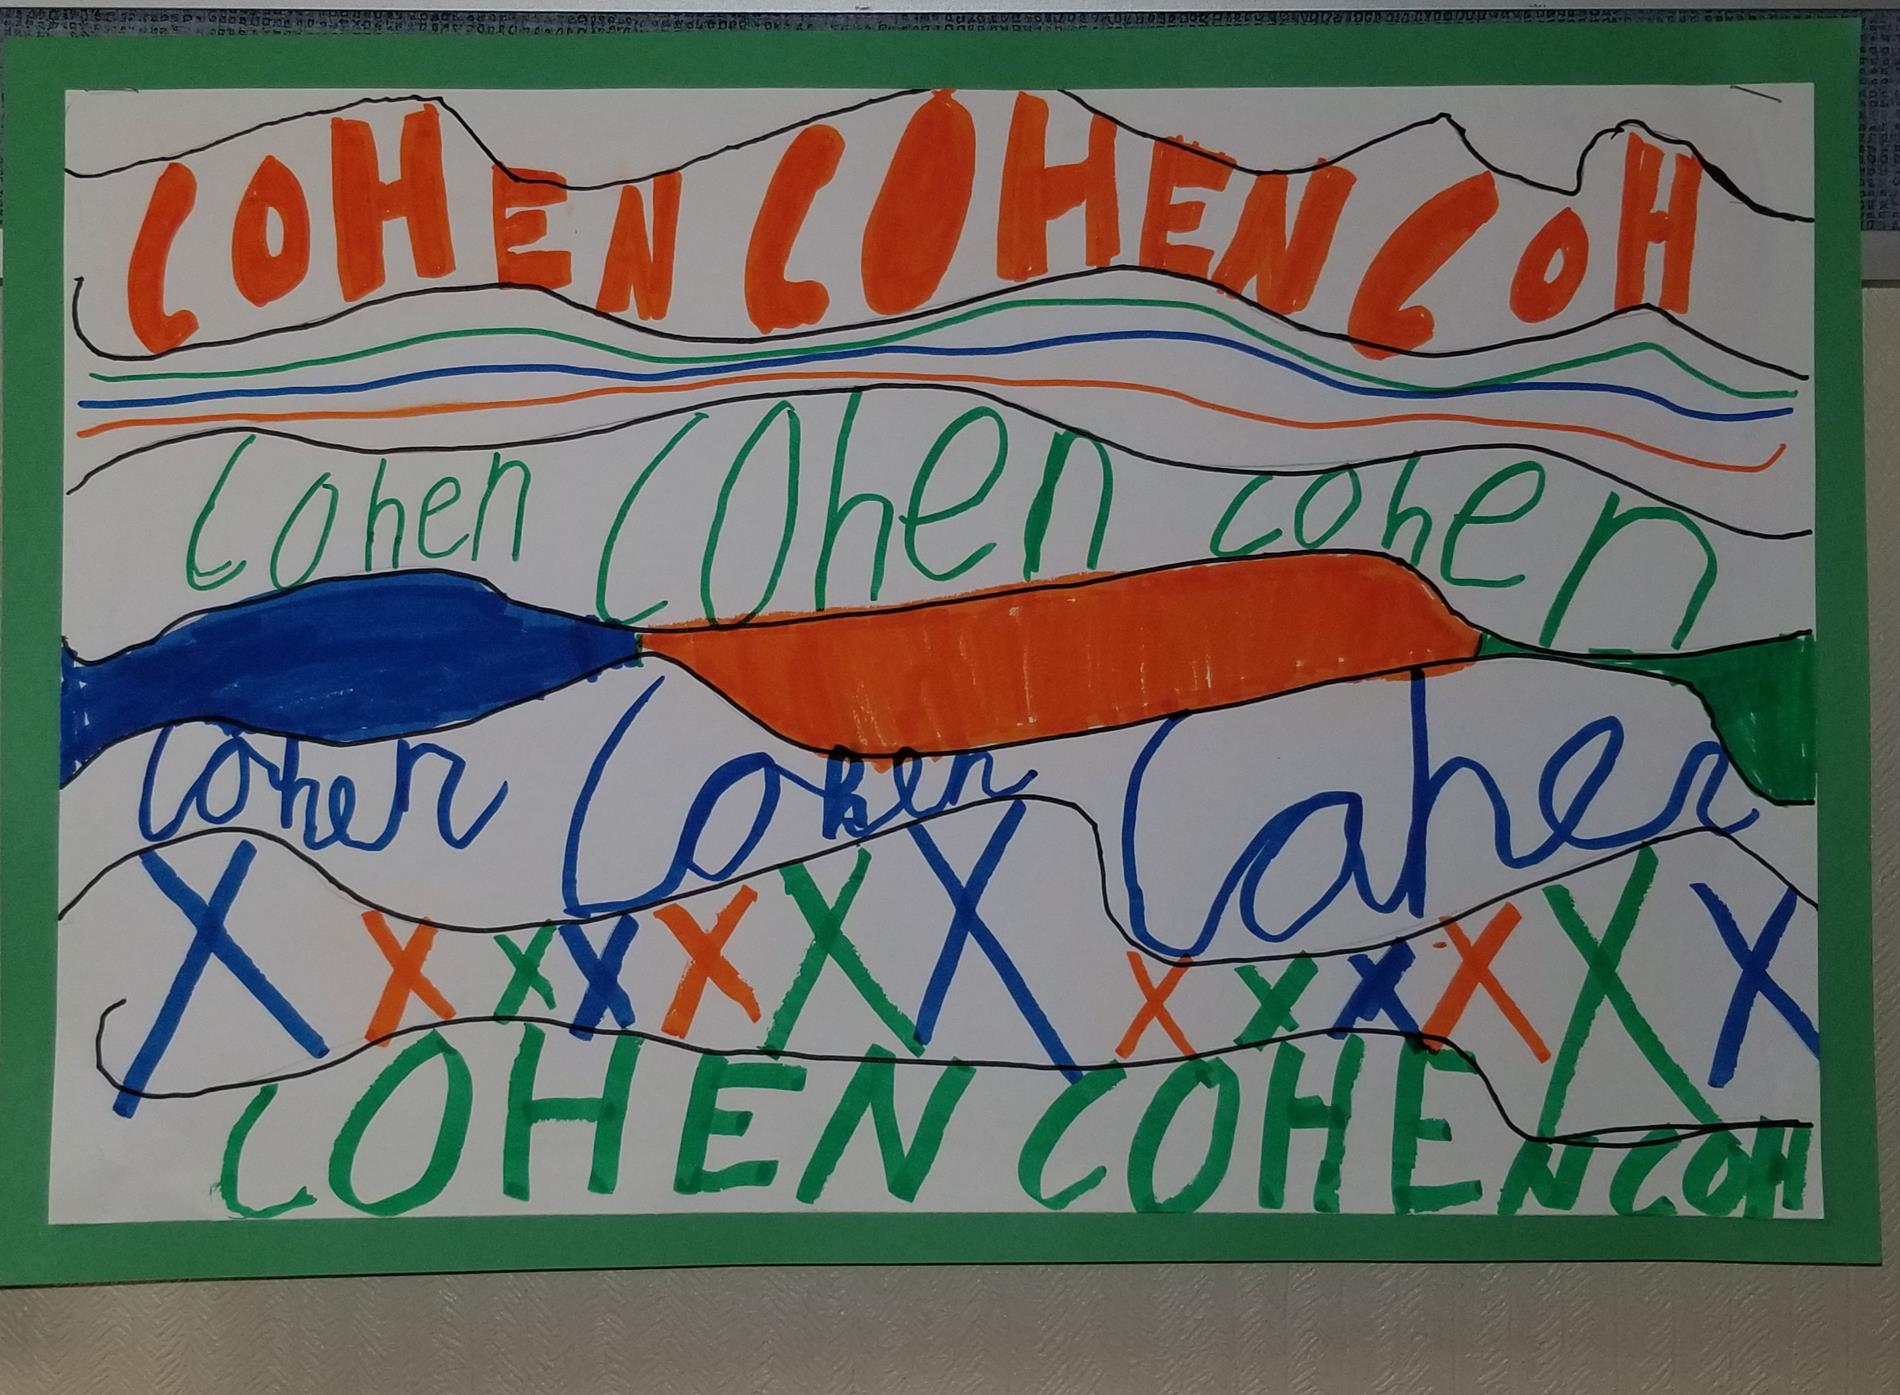 COHEN COHEN COH
Cohen Cohen cohen
Cohen Cohen Cohen
X X X X X X X X X X X X X
COHEN COHEN COH